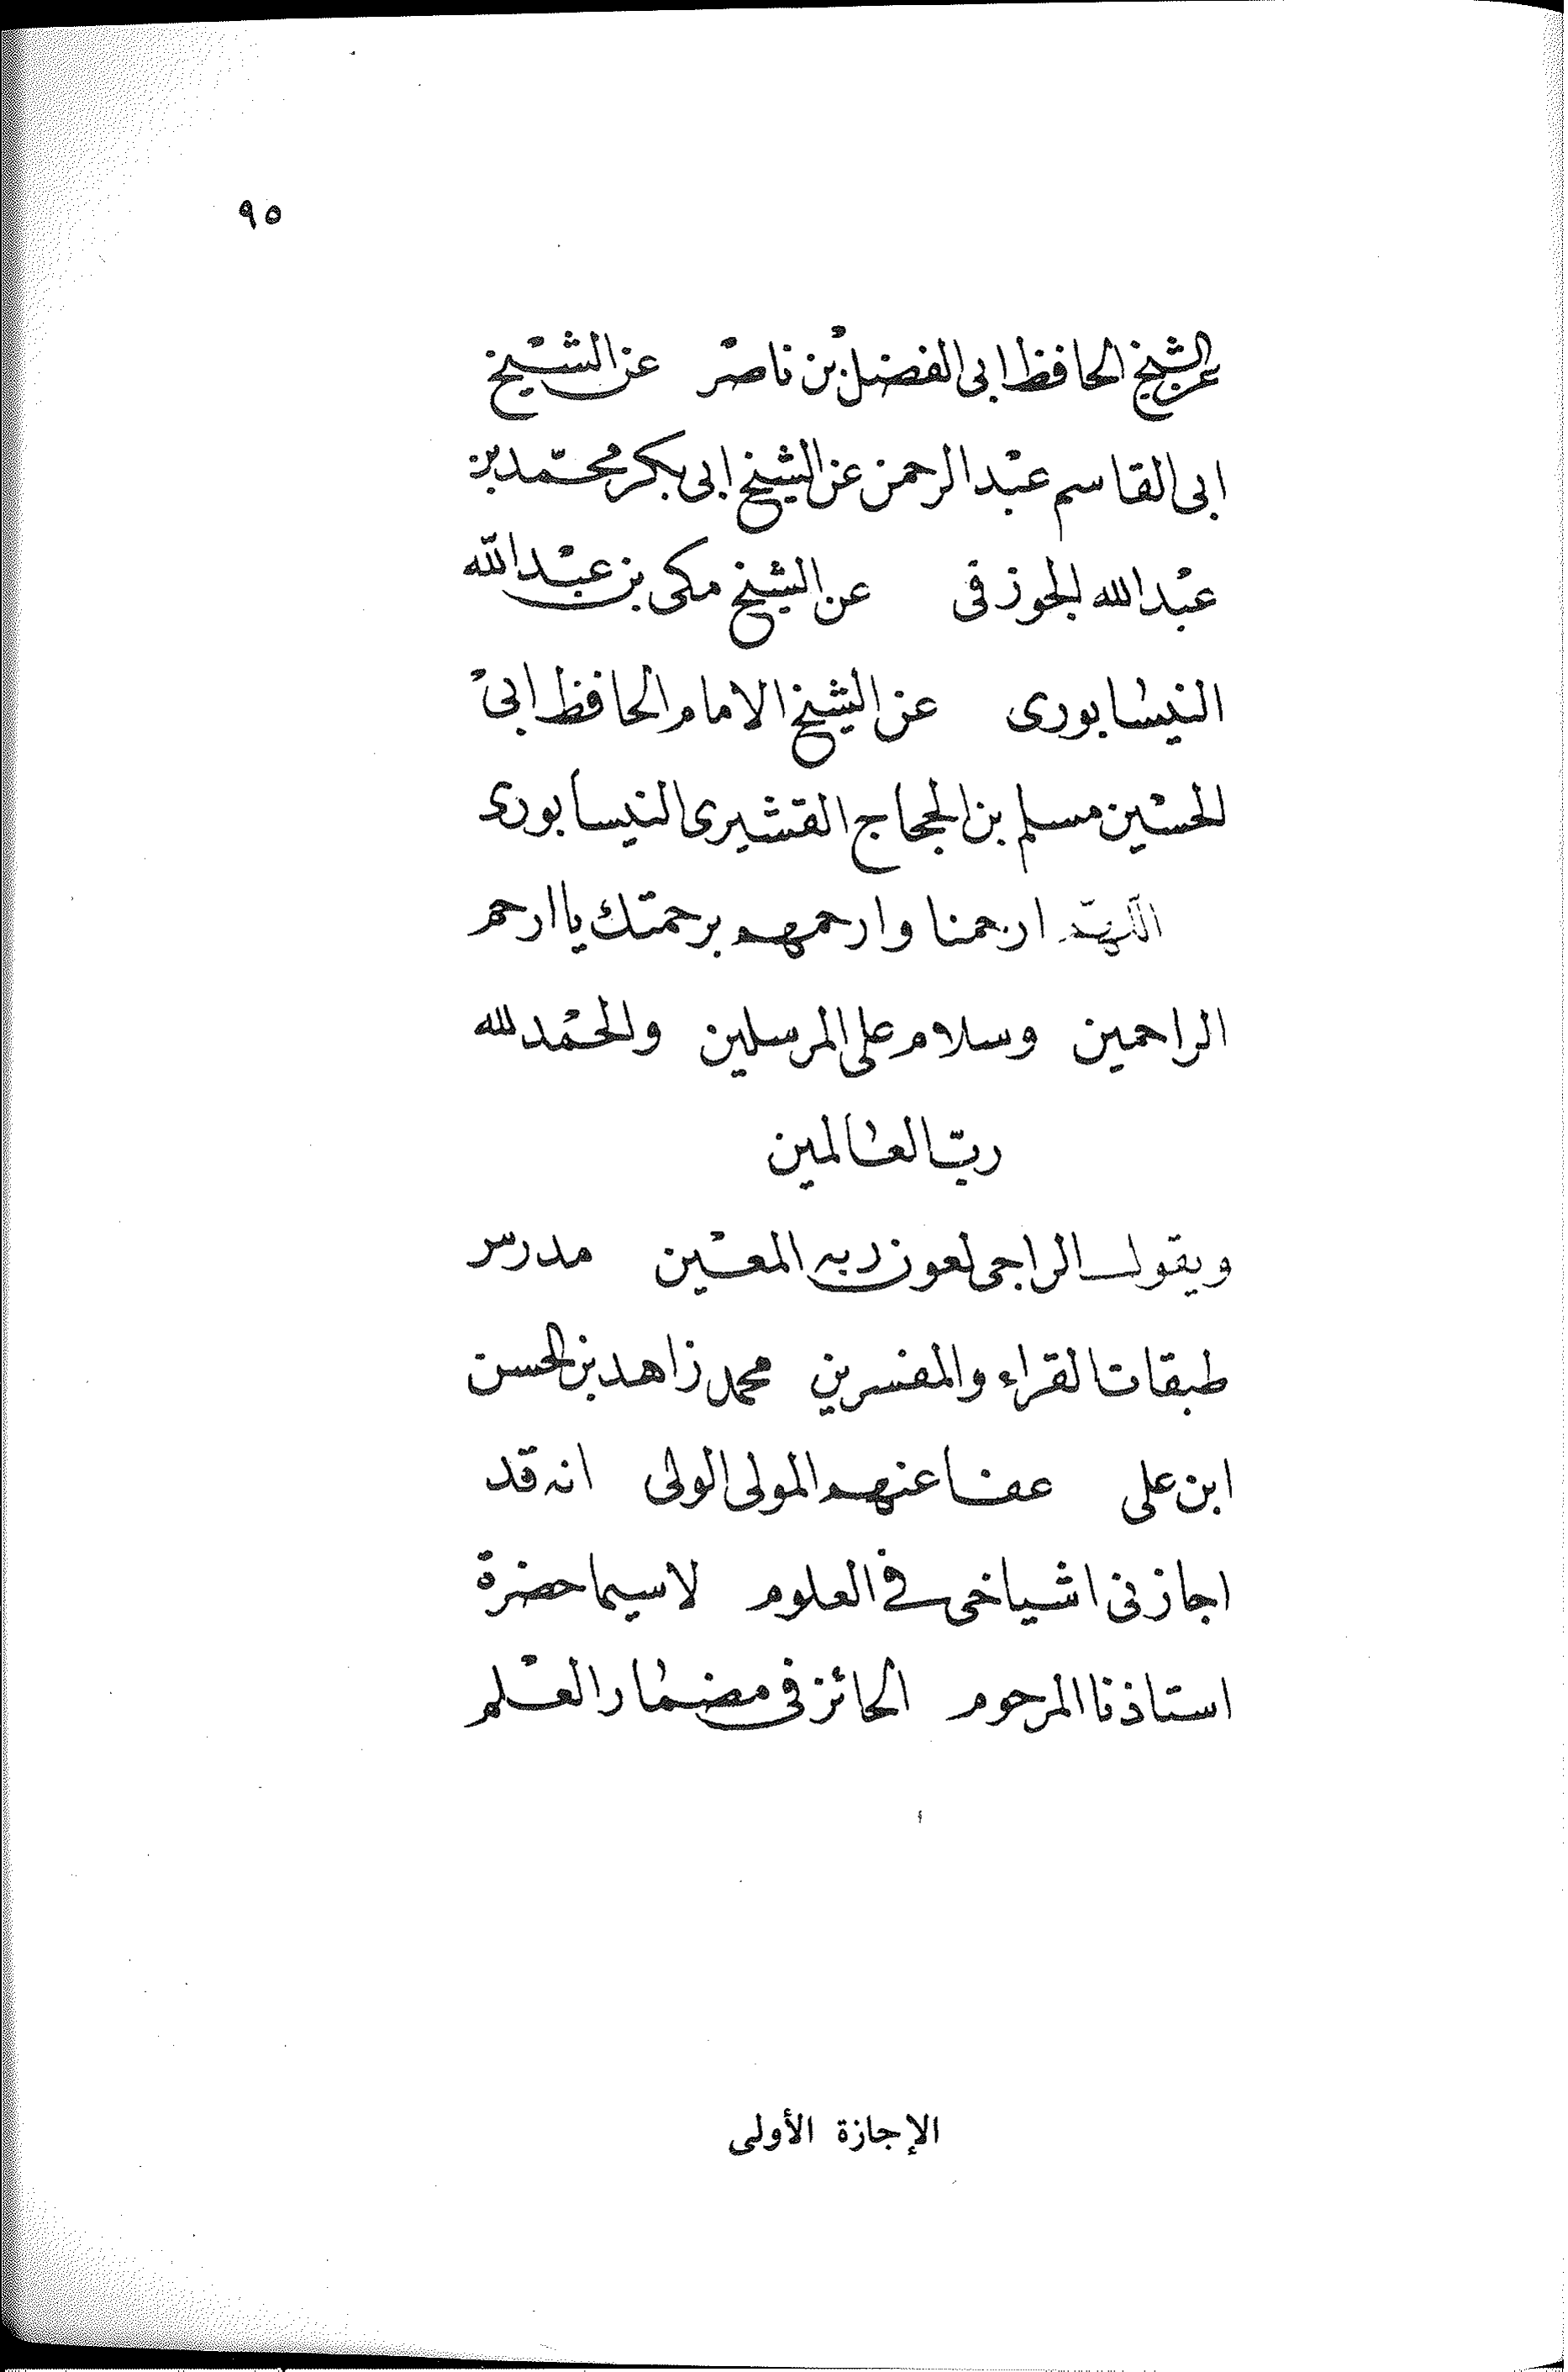 ٩٥
عن الشيخ الحافظ ابى الفضل بن ناصر عن الشيخ
ابى القاسم عبد الرحمن عن الشيخ ابى بكر محمّد بن
عبد الله الجوزقى عن الشيخ مكى بن عبد الله
النيسابورى عن الشيخ الامام الحافظ ابى
الحسين مسلم بن الحجاج القشيرى النيسابورى
اللهمّ ارحمنا وارحمهم برحمتك يا ارحم
الراحمين وسلام على المرسلين والحمد لله
ربّ العالمين
ويقول الراجى لعون ربه المعين مدرس
طبقات القراء والمفسرين محمد زاهد بن الحسن
ابن على عفا عنهم المولى الولى انه قد
اجازنى اشياخى فى العلوم لاسيما حضرة
استاذنا المرحوم الحائز فى مضمار العلم
الإجازة الأولى